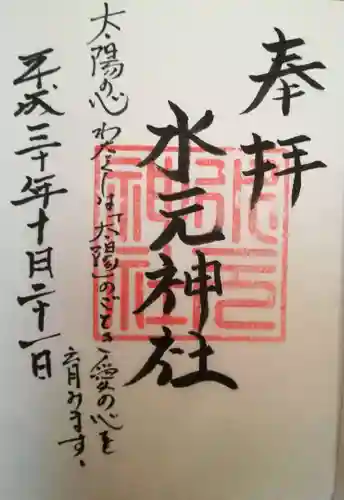 奉拝
水元神社
太陽の心 わたくしは「太陽」のごとき、愛の心を
育みます。
平成三十年十月二十一日
水元
神社